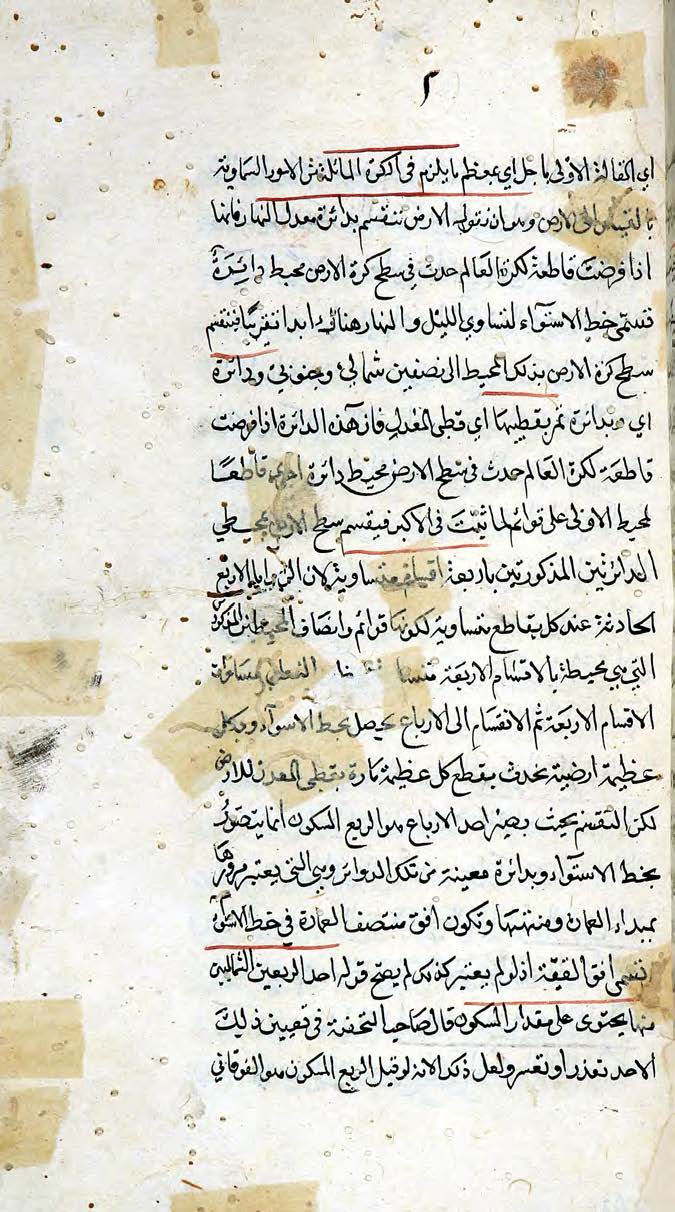 ٢
اي المقالة الاولى باجل اي بمعظم ما يلزم في الكرة المائلة من الامور السماوية
بالقياس الى الارض وهو ان نقول الارض تنقسم بدائرة معدل النهار فانها
اذا فرضت قاطعة لكرة العالم حدث في سطح كرة الارض محيط دائرة
تسمى خط الاستواء لتساوي الليل والنهار هنالك ابدا تقريبا فتنقسم
سطح كرة الارض بذلك المحيط الى نصفين شمالي وجنوبي ودائرة
اي وبدائرة تمر بقطبيها اي قطبي المعدل فان هذه الدائرة اذا فرضت
قاطعة لكرة العالم حدث في سطح الارض محيط دائرة اخرى قاطعا
لمحيط الاولى على قوائم لما ثبت في الاكر فينقسم سطح الارض بمحيطي
الدائرتين المذكورتين باربعة اقسام متساوية لان الزوايا الاربع
الحادثة عند كل تقاطع متساوية لكونها قوائم وانصاف المحيطين المذكورين
التي هي محيطة بالاقسام الاربعة
الاقسام الاربعة ثم الانقسام الى الارباع يحصل بخط الاستواء وبكل
عظيمة ارضية تحدث بقطع كل عظيمة مارة بقطبي المعدل للارض
لكن التقسيم بحيث يصير احد الارباع هو الربع المسكون انما يتصور
بخط الاستواء وبدائرة معينة من تلك الدوائر وهي التي يعتبر مرورها
بمبداء العمارة ومنتهاها وتكون افق منتصف العمارة في خط الاستواء
تسمى افق القبة اذ لو لم يعتبر كذلك لم يصح قوله احد الربعين الشماليين
منها يحتوى على مقدار المسكون قال صاحب التحفة في تعيين ذلك
الاحد تعذر او تعسر ولعل ذكر الانه لو قيل الربع المسكون هو الفوقاني